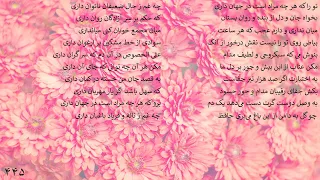 تو را که هر چه مراد است در جهان داری
چه غم ز حال ضعیفان ناتوان داری
بخواه جان و دل از بنده و روان بستان
که حکم بر سر آزادگان روان داری
میان نداری و دارم عجب که هر ساعت
میان مجمع خوبان کنی میانداری
بیاض روی تو را نیست نقش درخور از آنک
سوادی از خط مشکین بر ارغوان داری
بنوش می که سبکروحی و لطیف مدام
علی الخصوص در آن دم که سر گران داری
مکن عتاب از این بیش و جور بر دل ما
مکن هر آن چه توانی که جای آن داری
به اختیارت اگر صد هزار تیر جفاست
به قصد جان من خسته در کمان داری
بکش جفای رقیبان مدام و جور حسود
که سهل باشد اگر یار مهربان داری
به وصل دوست گرت دست می‌دهد یک دم
برو که هر چه مراد است در جهان داری
چو گل به دامن از این باغ می‌بری حافظ
چه غم ز ناله و فریاد باغبان داری
۴۴۵